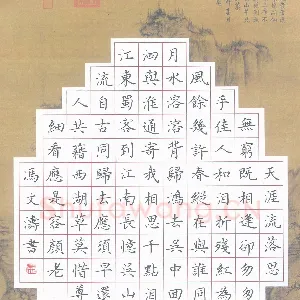 天涯流落思
無窮既相逢卻匆匆
手佳人和淚折殘紅為
風餘幾許春縱在與誰同
月水溶溶背歸鴻去吳中回
泗與淮通寄我相思千點淚
江東蜀客到江南長憶吳山
流自古同歸去莫須早還
人共籍西湖草莫惜尊
細看應是容顏老
馮文濤書